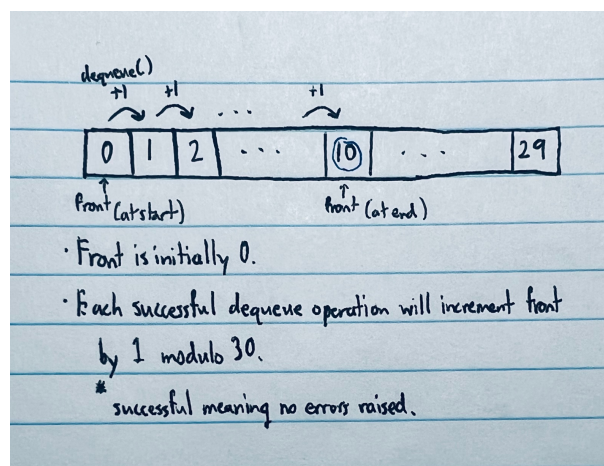 dequeue()
+1 +1 ... +1
0 1 2 ... 10 ... 29
front (at start) front (at end)
· Front is initially 0.
· Each successful dequeue operation will increment front
by 1 modulo 30.
* successful meaning no errors raised.